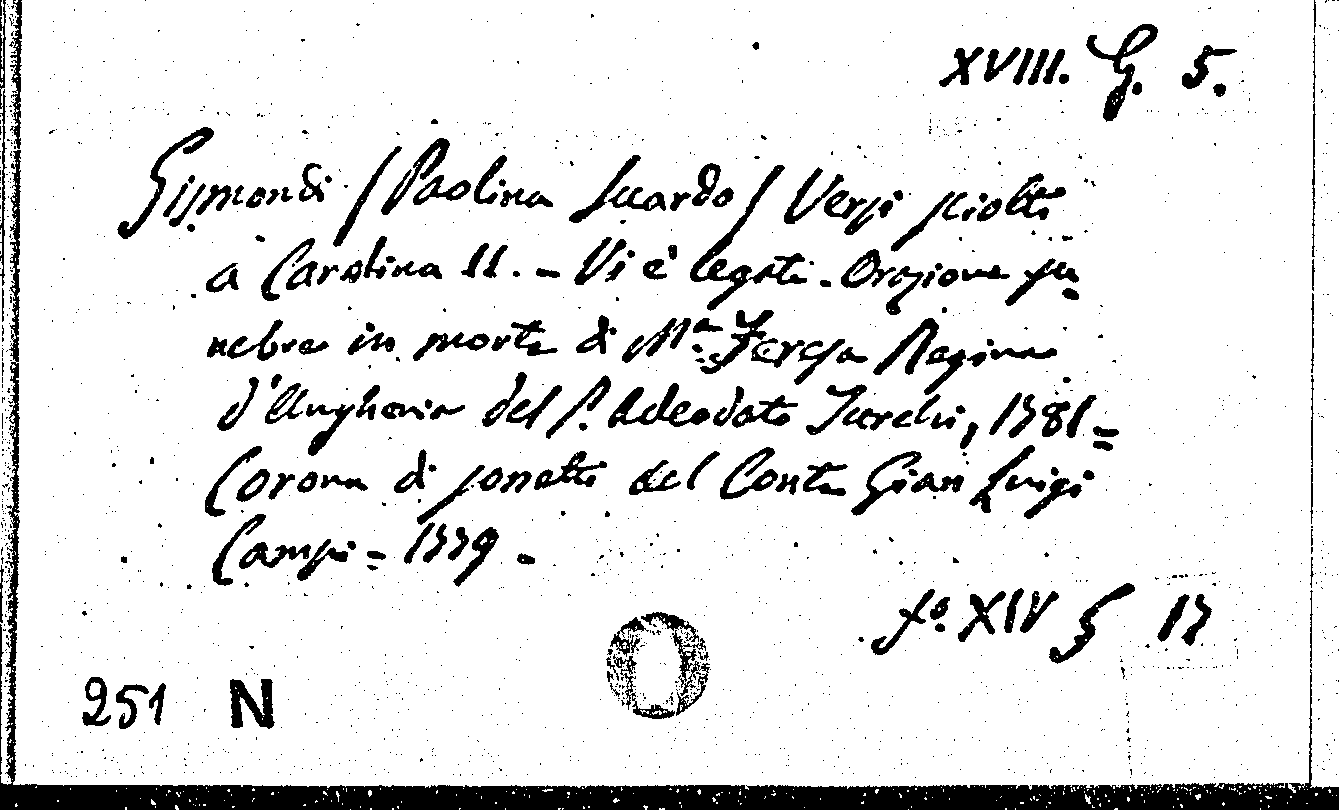 XVIII. G. 5.
Gismondi (Paolina Suardo) Versi sciolti
a Carolina II. - Vi è legata. Orazione fu=
nebre in morte di M.ª Teresa Regina
d'Ungheria del P. Adeodato Turchi, 1781 =
Corona di sonetti del Conte Gian Luigi
Campi = 1779 -
fº. XIV G 17
251 N